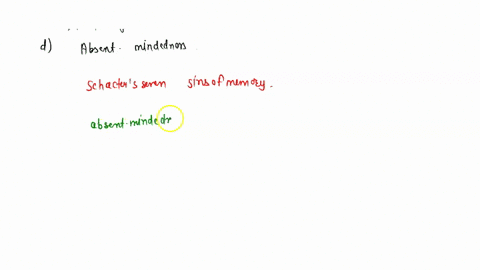 d) Absent-mindedness.
Schacter's seven sins of memory.
absent-minded